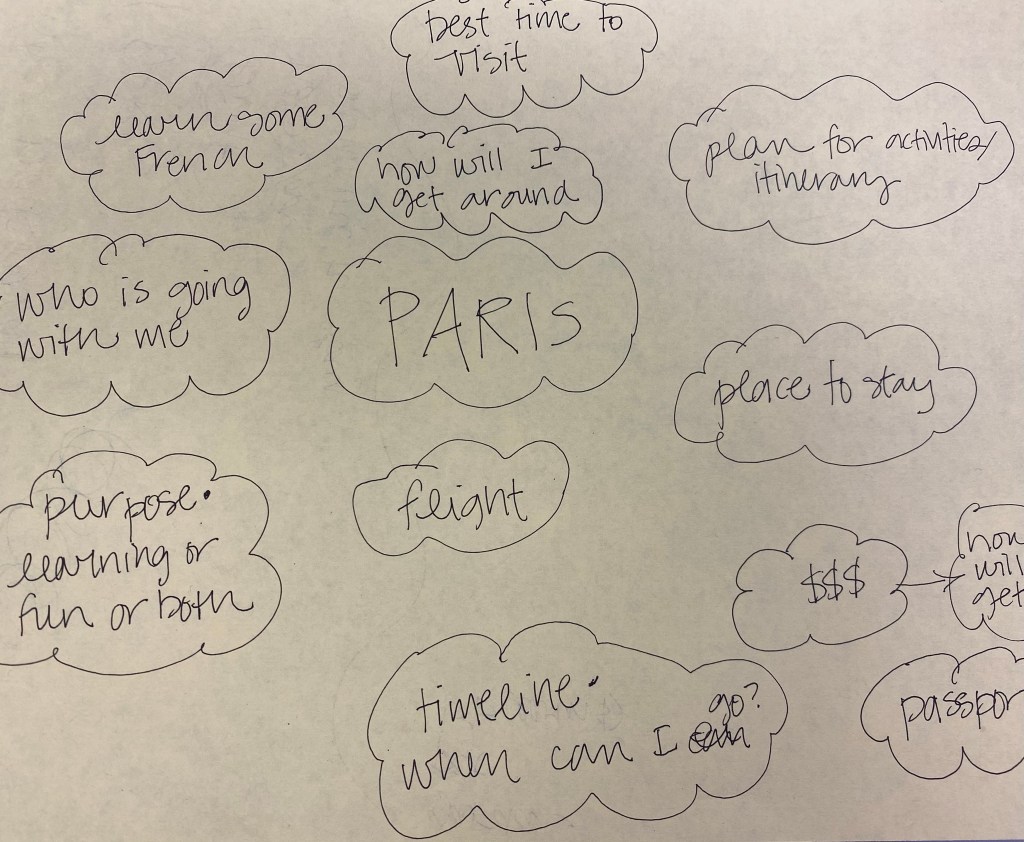 best time to
visit
learn some
French
how will I
get around
plan for activities/
itinerary
who is going
with me
PARIS
place to stay
purpose·
learning or
fun or both
flight
$$$
how
will
get
timeline·
go?
when can I
passpor